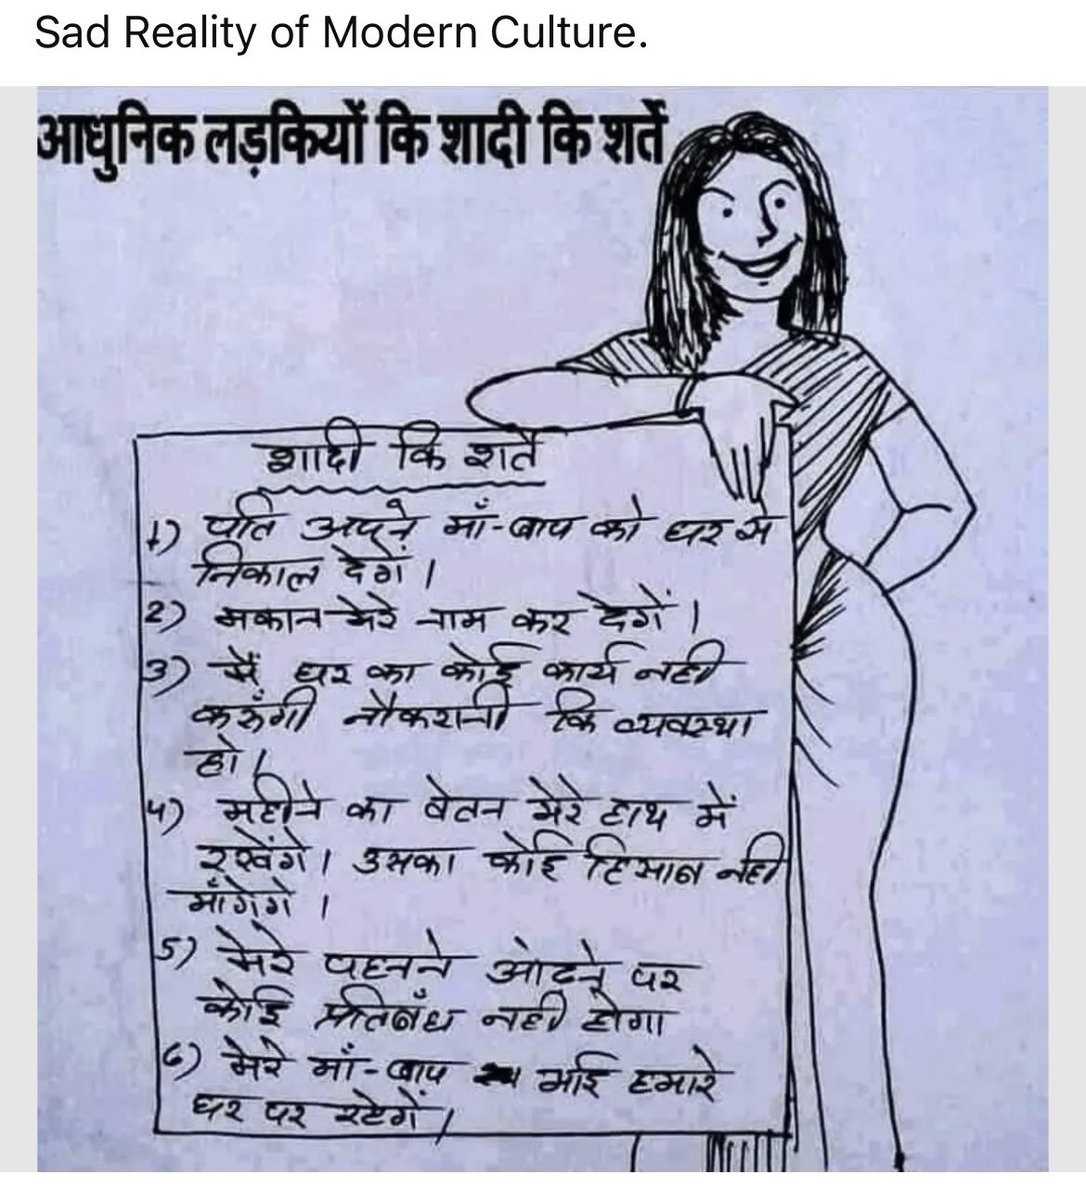 Sad Reality of Modern Culture.
आधुनिक लड़कियों कि शादी कि शर्ते
शादी कि शर्ते
1) पति अपने माँ-बाप को घर से
निकाल देगें।
2) मकान मेरे नाम कर देगें।
3) में घर का कोई कार्य नही
करुंगी नौकरानी कि व्यवस्था
हो।
4) महीने का वेतन मेरे हाथ में
रखेंगे। उसका कोई हिसाब नही
माँगेगे।
5) मेरे पहनने ओढने पर
कोई प्रतिबंध नही होगा
6) मेरे माँ-बाप भाई हमारे
घर पर रहेगें।